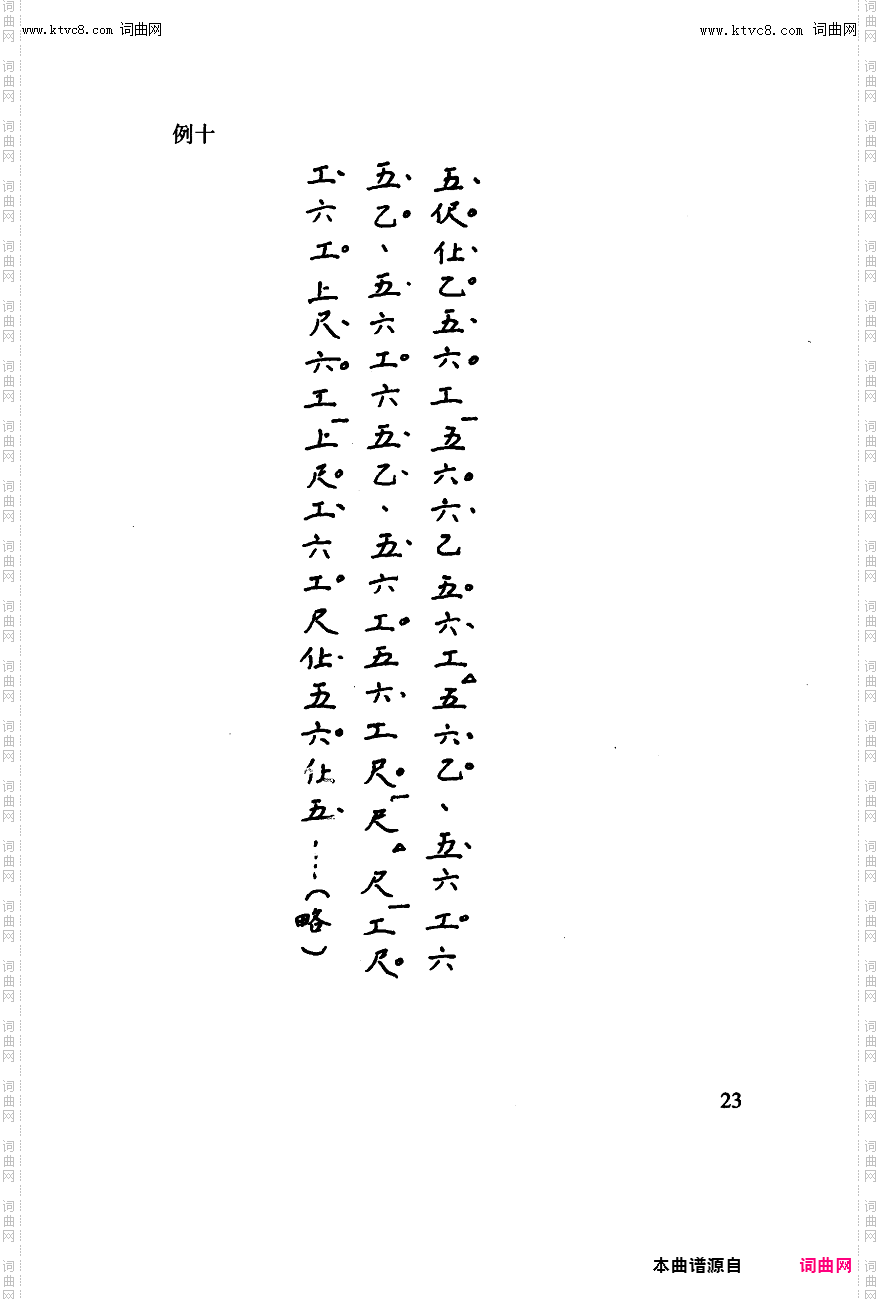 www.ktvc8.com 词曲网
www.ktvc8.com 词曲网
例十
五、伬。仩、乙。五、六。工五一六。六、乙五。六、工五△六、乙。、五、六工。六
五、乙。、五、六工。六五、乙、、五、六工。五六、工尺。尺一尺△工一尺。
工、六工。上尺、六。工上一尺。工、六工。尺仩、五六。仩五、……(略)
23
本曲谱源自 词曲网